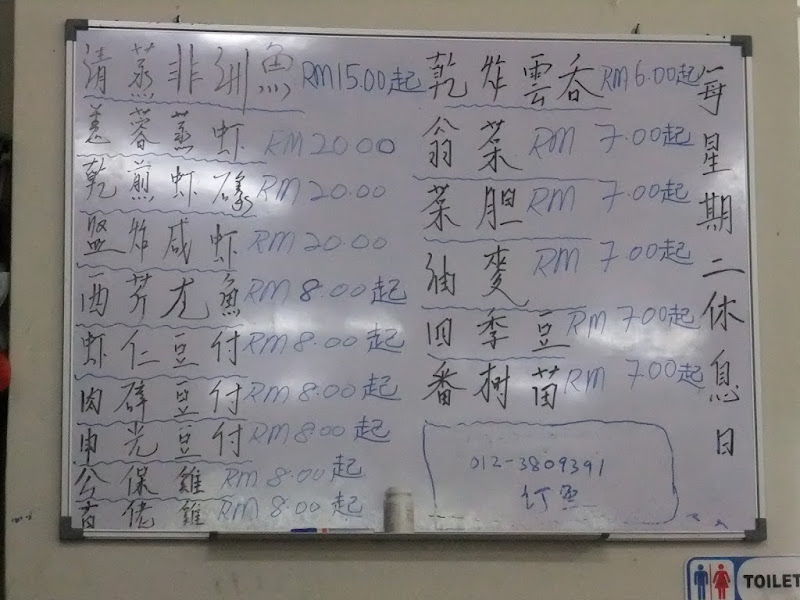 清蒸非洲魚 RM15.00起
姜蓉蒸虾 RM20.00
乾煎虾碌 RM20.00
盐炸咸虾 RM20.00
西芹尤魚 RM8.00起
虾仁豆付 RM8.00起
肉碎豆付 RM8.00起
申光豆付 RM8.00起
公保雞 RM8.00起
佬雞 RM8.00起
乾炸雲吞 RM6.00起
翁菜 RM 7.00起
菜胆 RM 7.00起
油麥 RM 7.00起
四季豆 RM 7.00起
番树苗 RM 7.00起
012-3809391
每星期二休息日
TOILET